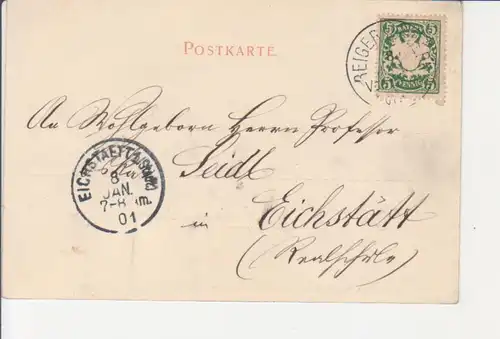 POSTKARTE.
BAYERN
5 5
PFENNIG
REIGER
An Wohlgeborn Herrn Professor
Seidl
in Eichstätt
(Realschule)
EICHSTAETT
8
JAN.
7-8 Vm.
01